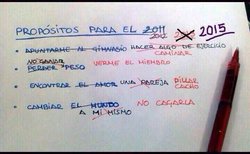 PROPÓSITOS PARA EL 2011 2015
2012
• APUNTARME AL GIMNASIO HACER ALGO DE EJERCICIO
CAMINAR
NO GANAR
• PERDER PESO VERME EL MIEMBRO
• ENCONTRAR EL AMOR UNA PAREJA PILLAR
CACHO
• CAMBIAR EL MUNDO NO CAGARLA
A MI MISMO